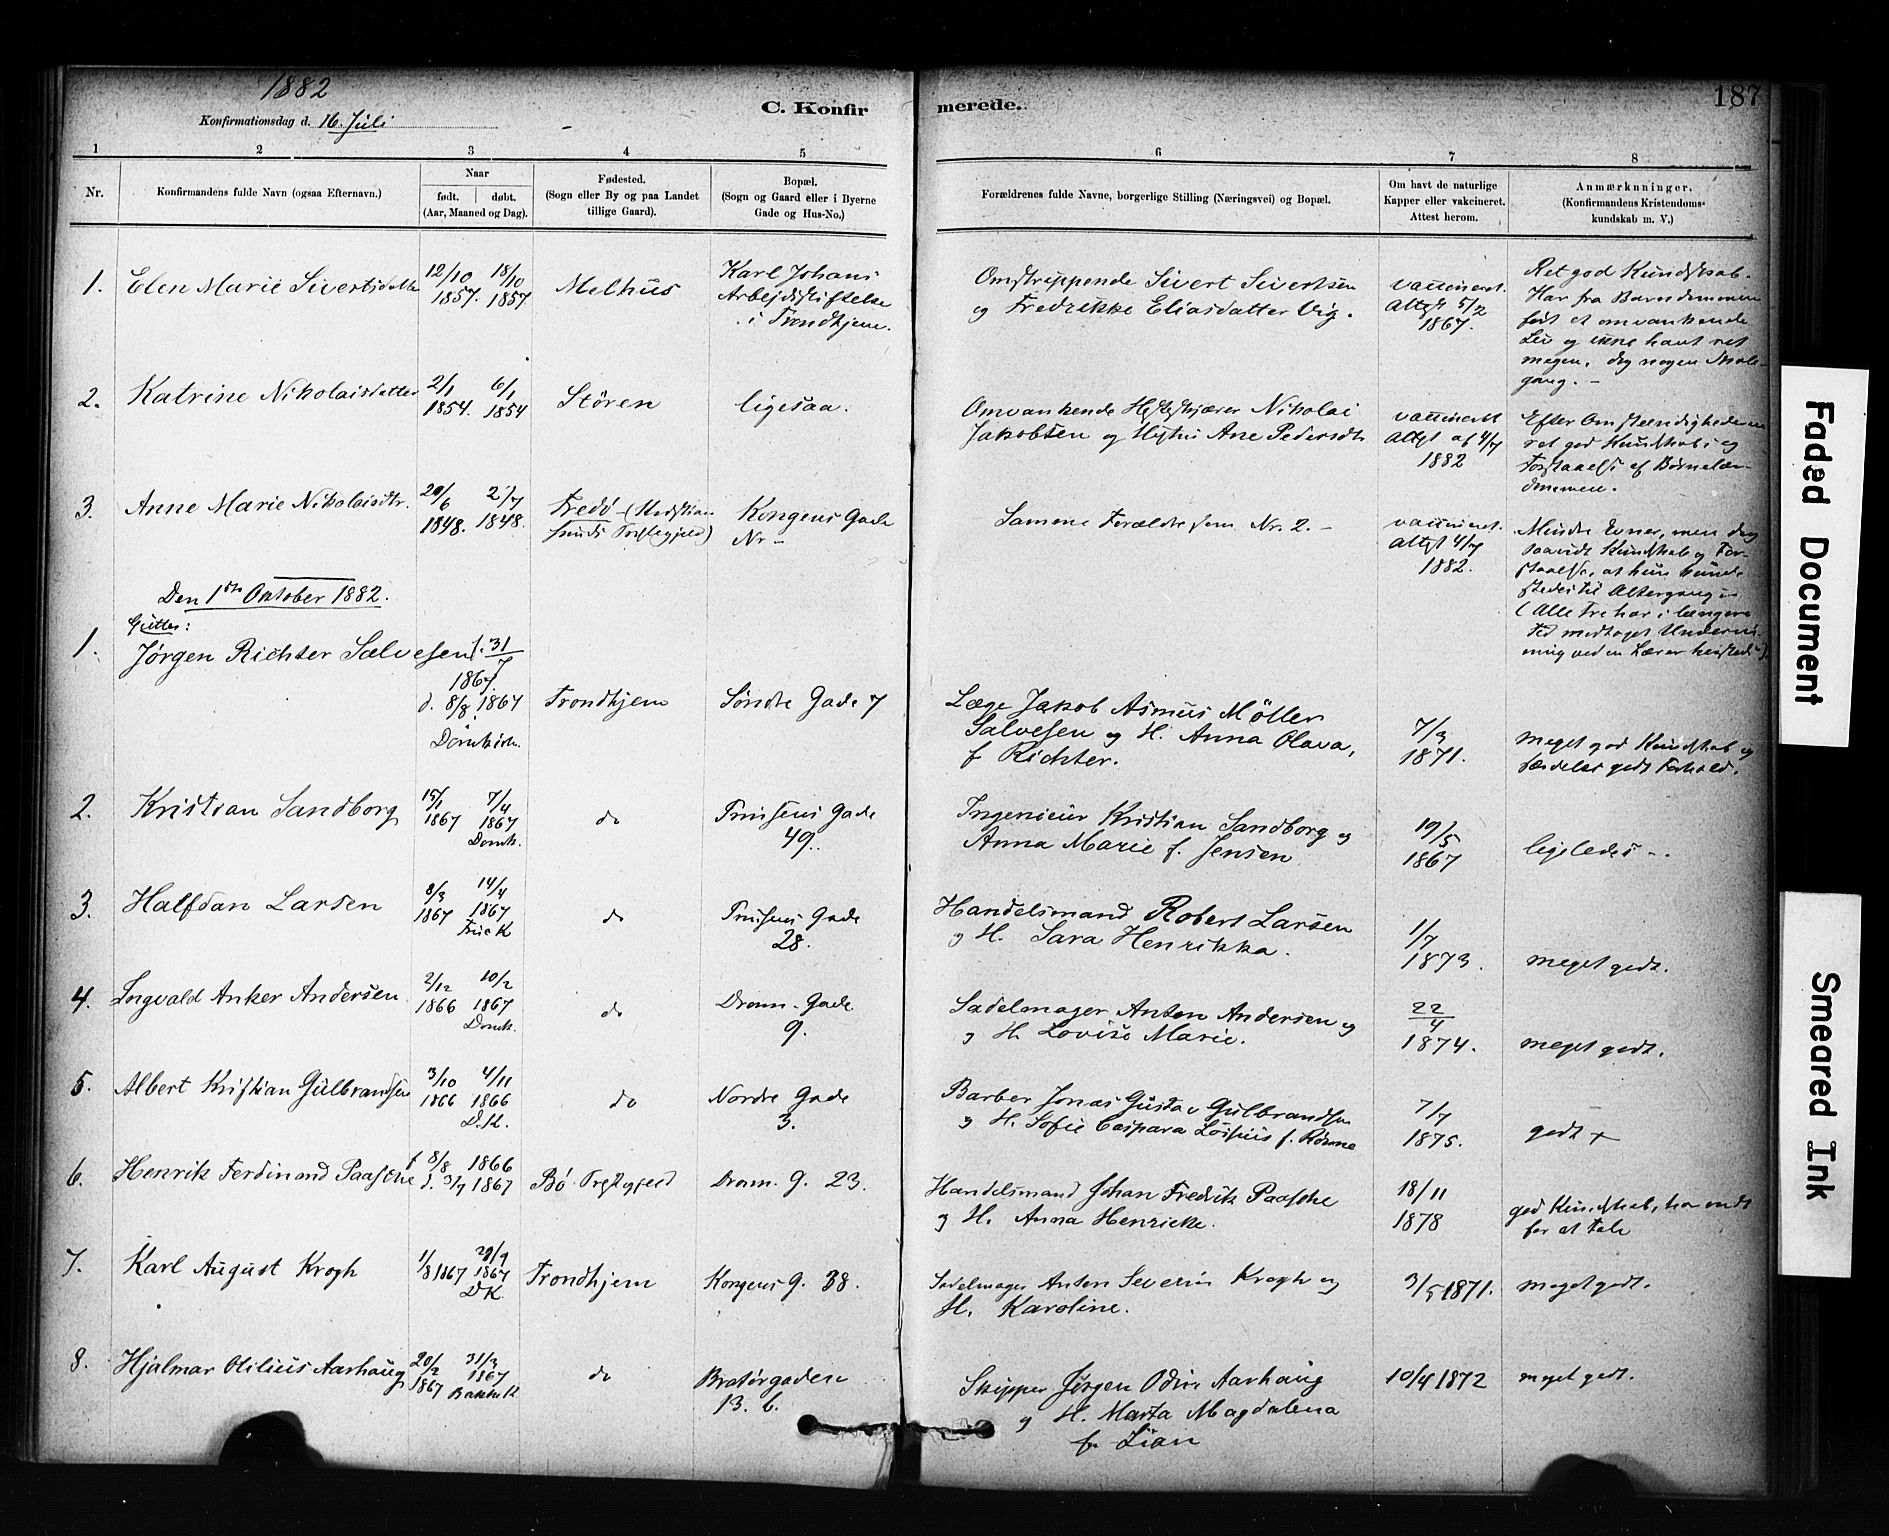 1882
C. Konfirmerede.
187
Konfirmationsdag d. 16. Juli
1 2 3 4 5 6 7 8
Nr.
Konfirmandens fulde Navn (ogsaa Efternavn.)
Naar
født. døbt.
(Aar, Maaned og Dag).
Fødested.
(Sogn eller By og paa Landet
tillige Gaard).
Bopæl.
(Sogn og Gaard eller i Byerne
Gade og Hus-No.)
Forældrenes fulde Navne, borgerlige Stilling (Næringsvei) og Bopæl.
Om havt de naturlige
Kapper eller vakcineret.
Attest herom.
Anmærkninger.
(Konfirmandens Kristendoms-
kundskab m. V.)
1. Elen Marie Sivertsdatter
12/10 18/10
1857. 1857
Melhus
Karl Johans
Arbejdsstiftelse
i Trondhjem.
Omstreppende Sivert Sivertsen
og Fredrikke Eliasdatter Vig.
vaccineret.
Attest 5/2
1867.
Ret god Kundskab.
Har fra Barndommen
ført et omvankende
Liv og ikke havt ret
megen, dog nogen Skole-
gang. -
2. Katrine Nikolaisdatter
2/1 6/1
1854. 1854
Støren
ligesaa.
Omvankende Hesteskjærer Nikolai
Jakobsen og Hustru Ane Pedersdtr
vaccineret
Attest af 4/7
1882
Efter Omstændighederne
ret god Kundskab og
Forstaaelse af Børnelær-
dommen.
3. Anne Marie Nikolaisdtr.
29/6 2/7
1848. 1848.
Fredø - (Kristian
sunds Præstegjeld)
Kongens Gade
Nr -
Samme Forældre som Nr. 2. -
vaccineret.
Attest 4/7
1882.
Mindre Evner, men dog
saavidt Kundskab og For-
staaelse, at hun kunde
stedes til Altergang -
(Alle tre har i længere
Tid modtaget Undervis-
ning ved en Lærer
Den 1ste Oktober 1882.
Gutter:
1. Jørgen Richter Salvesen
f. 31/7
1867
d. 8/8 1867
Domkirk.
Trondhjem
Søndre Gade 7
Læge Jakob Asmus Møller
Salvesen og H. Anna Olava,
f Richter.
7/3
1871.
meget god Kundskab og
særdeles godt Forhold.
2. Kristian Sandborg
15/1 7/4
1867 1867
Domk.
do
Prinsens Gade
49.
Ingenieur Kristian Sandborg og
Anna Marie f. Jensen
19/5
1867
ligeledes -.
3. Halfdan Larsen
8/3 14/4
1867 1867
Frue K
do
Prinsens Gade
28.
Handelsmand Robert Larsen
og H. Sara Henrikka.
1/7
1873.
meget godt.
4. Ingvald Anker Andersen
2/12 10/2
1866 1867
Domk.
do
Dronn. Gade
9.
Sadelmager Anton Andersen og
H. Lovise Marie.
22/4
1874.
meget godt.
5. Albert Kristian Gulbrandsen
3/10 4/11
1866 1866
D.K.
do
Nordre Gade
3.
Barber Jonas Gustav Gulbrandsen
og H. Sofie Caspara
7/7
1875.
godt +
6. Henrik Ferdinand Paasche
f 8/8 1866
d. 3/7 1867
Bø Prgstgjeld
Dronn. G. 23.
Handelsmand Johan Fredrik Paasche
og H. Anna Henricke.
18/11
1878
god Kundskab, har ondt
for at tale
7. Karl August Krogh
1/8 1867 29/9
1867
DK
Trondhjem
Kongens G. 38.
Sadelmager Anton Severin Krogh og
H. Karoline.
3/5 1871.
meget godt.
8. Hjalmar Otilius Aarhaug
20/2 31/3
1867 1867
Bakke K
do
Bratørgaden
13. b.
Skipper Jørgen Odin Aarhaug
og H. Marta Magdalena
f. Lian
10/4 1872
meget godt.
Faded Document
Smeared Ink